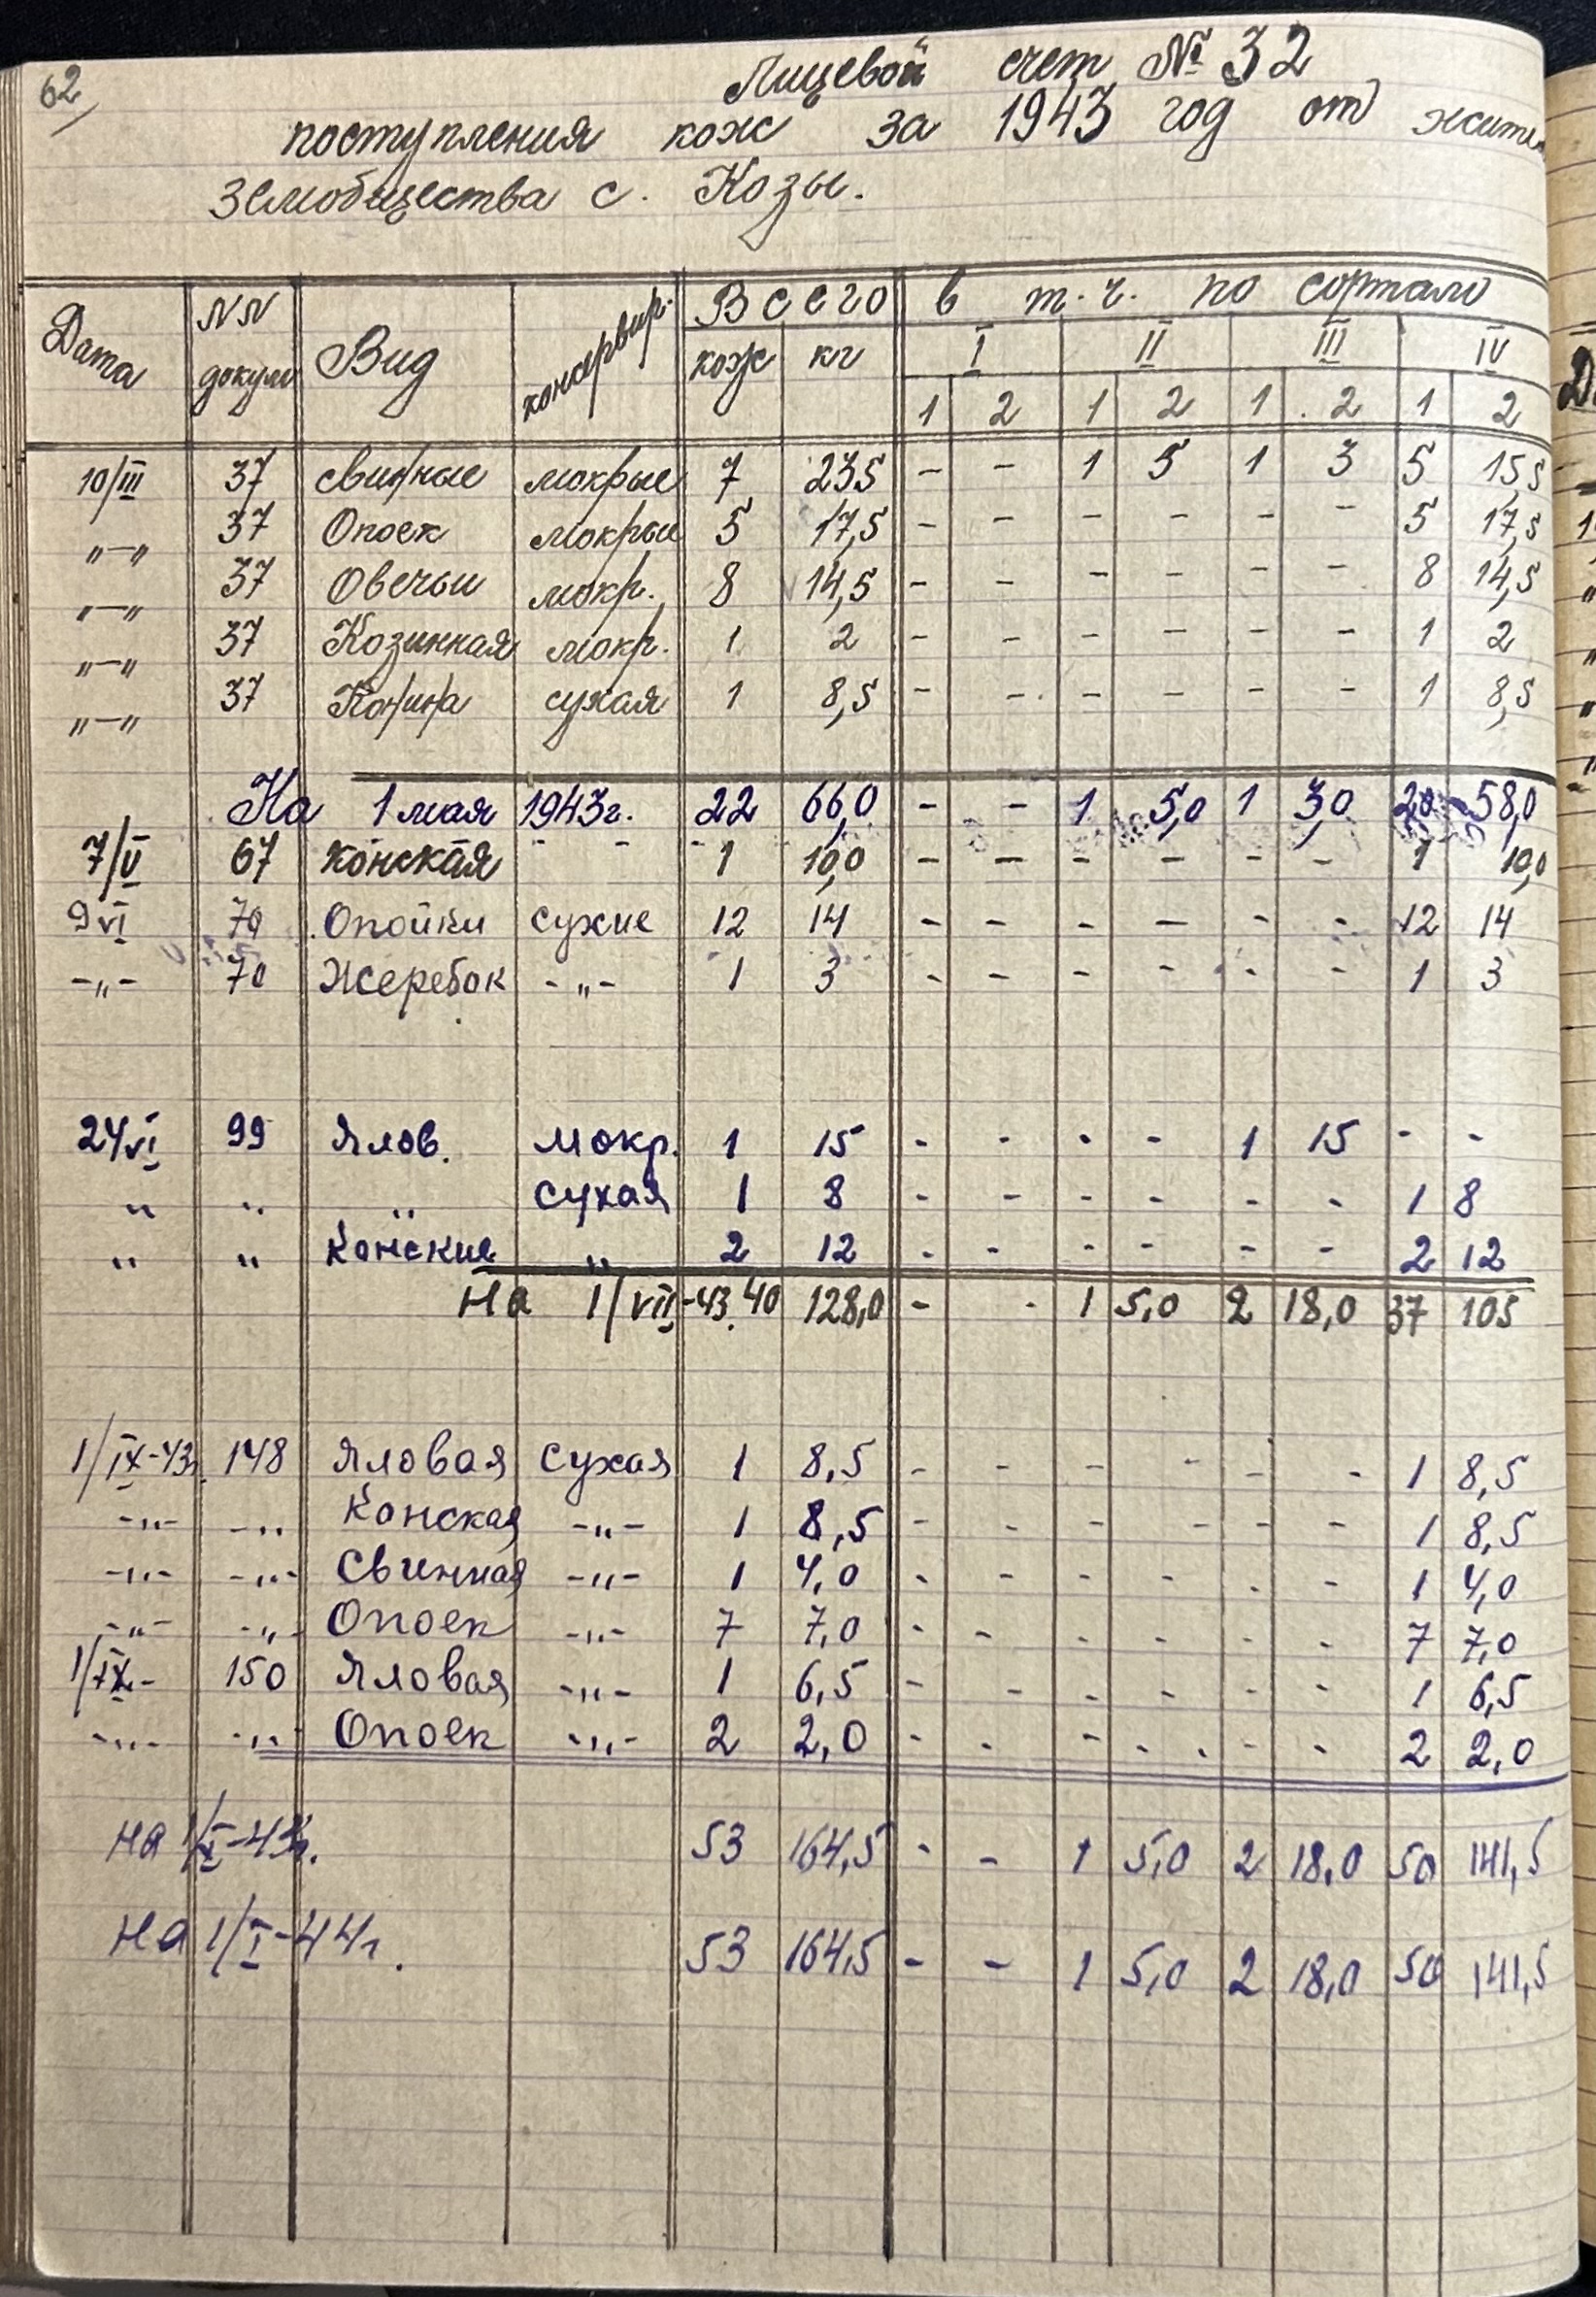 62
Лицевой счет № 32
поступления кож за 1943 год от жител
земобщества с. Козы.
Дата NN докум Вид консервир. Всего в т.ч. по сортам
кож кг I II III IV
1 2 1 2 1 2 1 2
10/III 37 свинные мокрые 7 23,5 - - 1 5 1 3 5 15,5
„—„ 37 Опоек мокрые 5 17,5 - - - - - - 5 17,5
„—„ 37 Овечьи мокр. 8 14,5 - - - - - - 8 14,5
„—„ 37 Козинная мокр. 1 2 - - - - - - 1 2
„—„ 37 Конина сухая 1 8,5 - - - - - - 1 8,5
На 1 мая 1943г. 22 66,0 - - 1 5,0 1 3,0 20 58,0
7/V 67 конская - - - 1 10,0 - - - - - - 1 10,0
9 VI 70 Опойки сухие 12 14 - - - - - - 12 14
-„- 70 Жеребок -„- 1 3 - - - - - - 1 3
24 VI 99 Ялов. мокр. 1 15 - - - - 1 15 - -
„ „ „ сухая 1 8 - - - - - - 1 8
„ „ Конские „ 2 12 - - - - - - 2 12
На 1/VII-43. 40 128,0 - - 1 5,0 2 18,0 37 105
1/IX-43г. 148 Яловая Сухая 1 8,5 - - - - - - 1 8,5
-„- -„ Конская -„- 1 8,5 - - - - - - 1 8,5
-„- -„- Свинная -„- 1 4,0 - - - - - - 1 4,0
-„- -„- Опоек -„- 7 7,0 - - - - - - 7 7,0
1/IX- 150 Яловая -„- 1 6,5 - - - - - - 1 6,5
-„- -„- Опоек -„- 2 2,0 - - - - - - 2 2,0
На 1/X-43г. 53 164,5 - - 1 5,0 2 18,0 50 141,5
На 1/I-44г. 53 164,5 - - 1 5,0 2 18,0 50 141,5